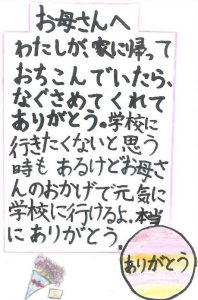 お母さんへ
わたしが、家に帰って
おちこんでいたら、
なぐさめてくれて
ありがとう。学校に
行きたくないと思う
時もあるけどお母さ
んのおかげで元気に
学校に行けるよ。本当
にありがとう。
ありがとう